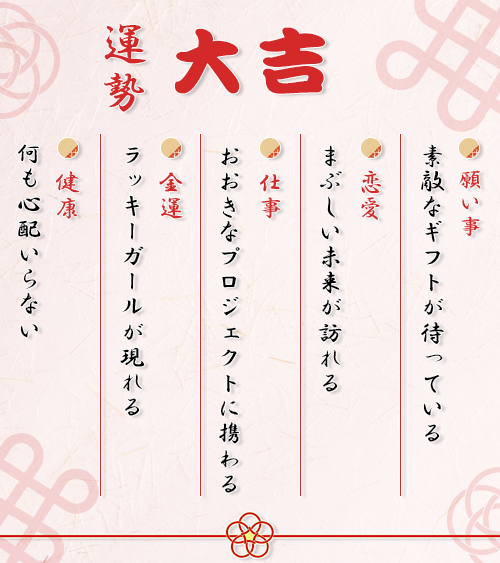 運勢
大吉
願い事
素敵なギフトが待っている
恋愛
まぶしい未来が訪れる
仕事
おおきなプロジェクトに携わる
金運
ラッキーガールが現れる
健康
何も心配いらない